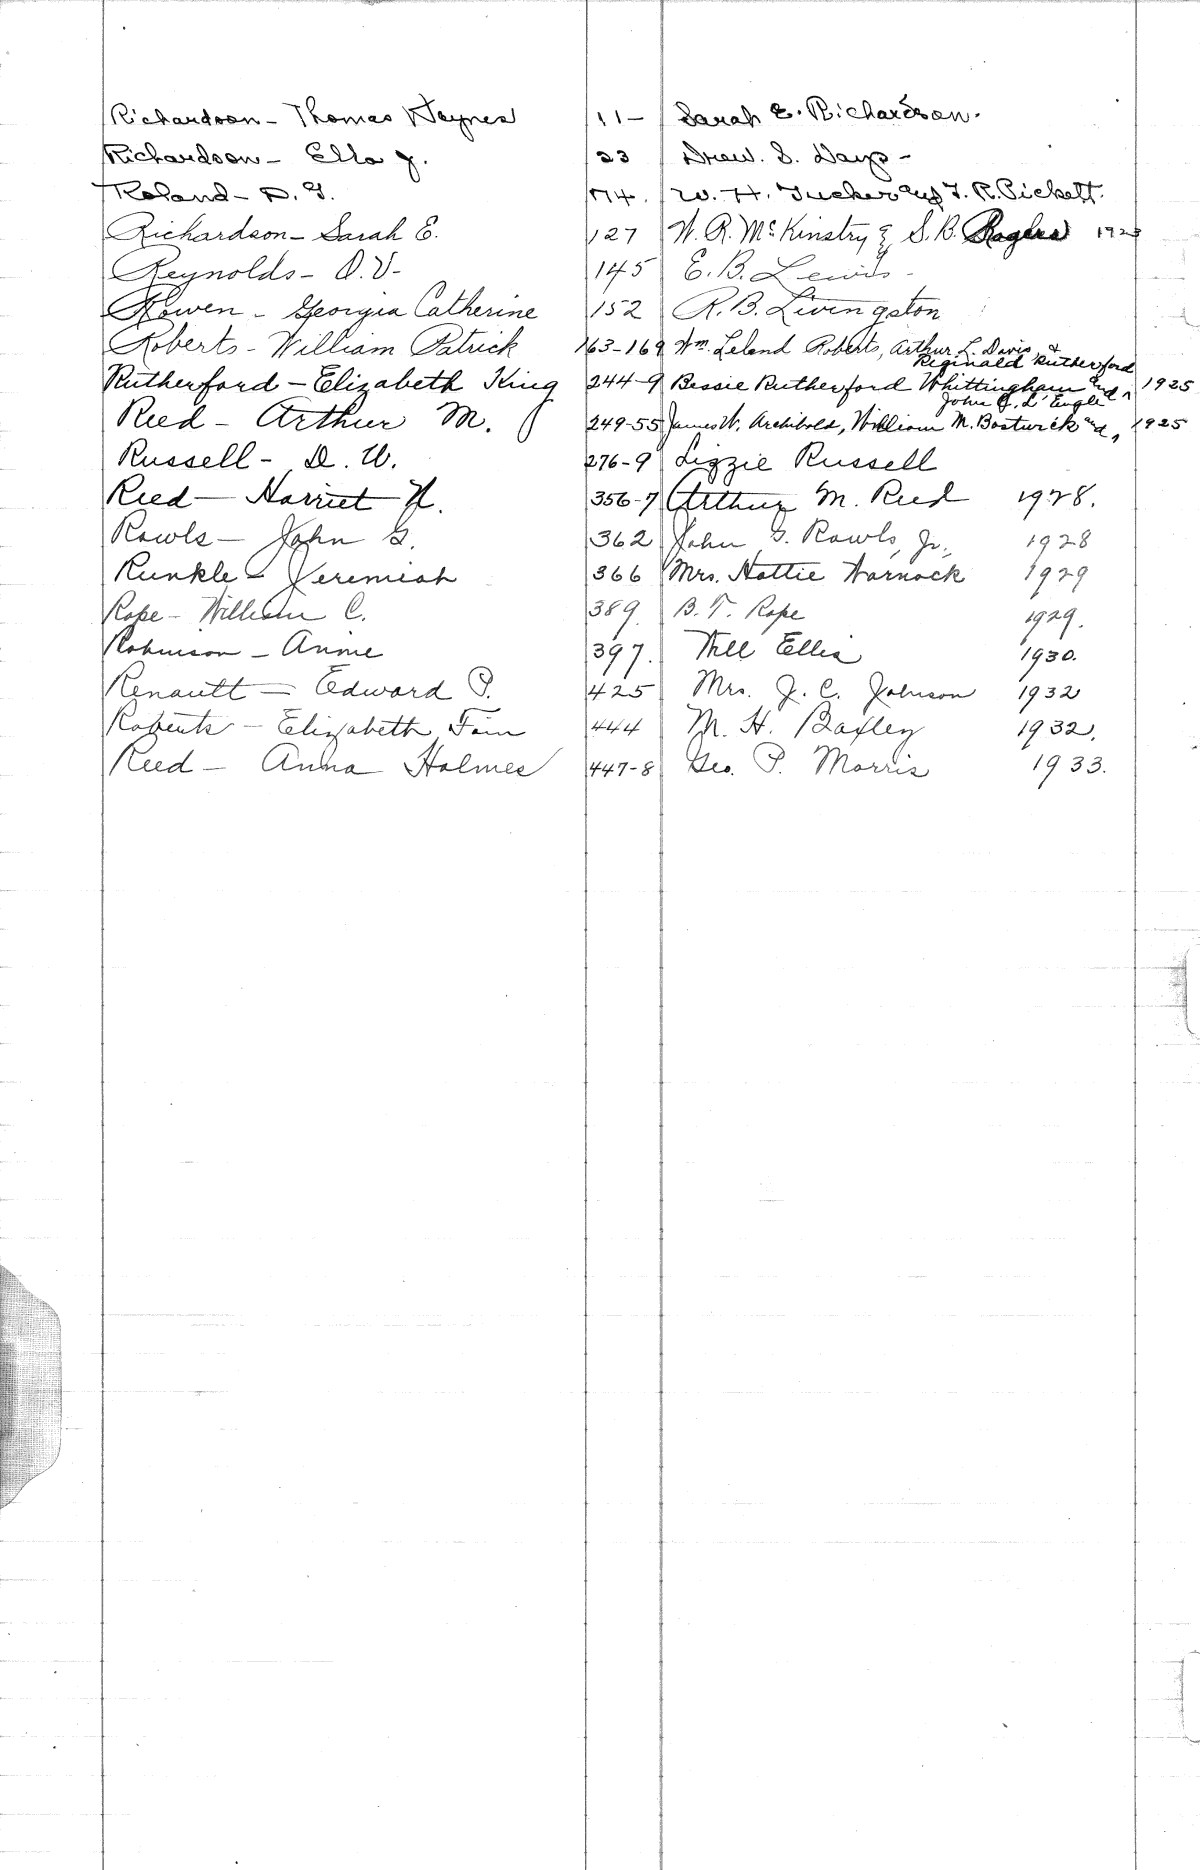 Richardson - Thomas Haynes 11 - Sarah E. Richardson.
Richardson - Ella J. 23 Drew. S. Days -
Roland - D. G. 74. W. H. Tucker and T. R. Pickett.
Richardson - Sarah E. 127 W. R. McKinstry & S. B. Rogers 1923
Reynolds - O. V - 145 E. B. Lewis -
Rowen - Georgia Catherine 152 R. B. Livingston
Roberts - William Patrick 163-169 Wm. Leland Roberts, Arthur L. Davis &
Reginald Rutherford
Rutherford - Elizabeth King 244-9 Bessie Rutherford Whittingham and 1925
John J. L'Engle
Reed - Arthur M. 249-55 James W. Archibald, William M. Bostwick and, 1925
Russell - D. W. 276-9 Lizzie Russell
Reed - Harriet N. 356-7 Arthur M. Reed 1928.
Rowls - John G. 362 John G. Rowls, Jr., 1928
Runkle - Jeremiah 366 Mrs. Hattie Warnock 1929
Rope - William C. 389. B. T. Rope 1929.
Robinson - Annie 397. Will Ellis 1930.
Renault - Edward P. 425 Mrs. J. C. Johnson 1932
Roberts - Elizabeth 444 M. H. Baxley 1932.
Reed - Anna Holmes 447-8 Geo. P. Morris 1933.